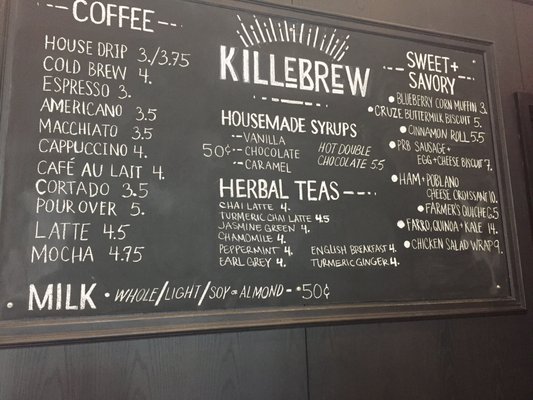 COFFEE
HOUSE DRIP 3./3.75
COLD BREW 4.
ESPRESSO 3.
AMERICANO 3.5
MACCHIATO 3.5
CAPPUCCINO 4.
CAFÉ AU LAIT 4.
CORTADO 3.5
POUR OVER 5.
LATTE 4.5
MOCHA 4.75
KILLEBREW
HOUSEMADE SYRUPS
50¢
--VANILLA
--CHOCOLATE
--CARAMEL
HOT DOUBLE
CHOCOLATE 5.5
HERBAL TEAS
CHAI LATTE 4.
TURMERIC CHAI LATTE 4.5
JASMINE GREEN 4.
CHAMOMILE 4.
PEPPERMINT 4.
EARL GREY 4.
ENGLISH BREAKFAST 4.
TURMERIC GINGER 4.
SWEET +
SAVORY
BLUEBERRY CORN MUFFIN 3.
CRUZE BUTTERMILK BISCUIT 5.
CINNAMON ROLL 5.5
PRB SAUSAGE +
EGG + CHEESE BISCUIT 7.
HAM + POBLANO
CHEESE CROISSANT 10.
FARMER'S QUICHE 6.5
FARRO, QUINOA + KALE 14.
CHICKEN SALAD WRAP 9.
MILK • WHOLE/LIGHT/SOY - ALMOND - •50¢